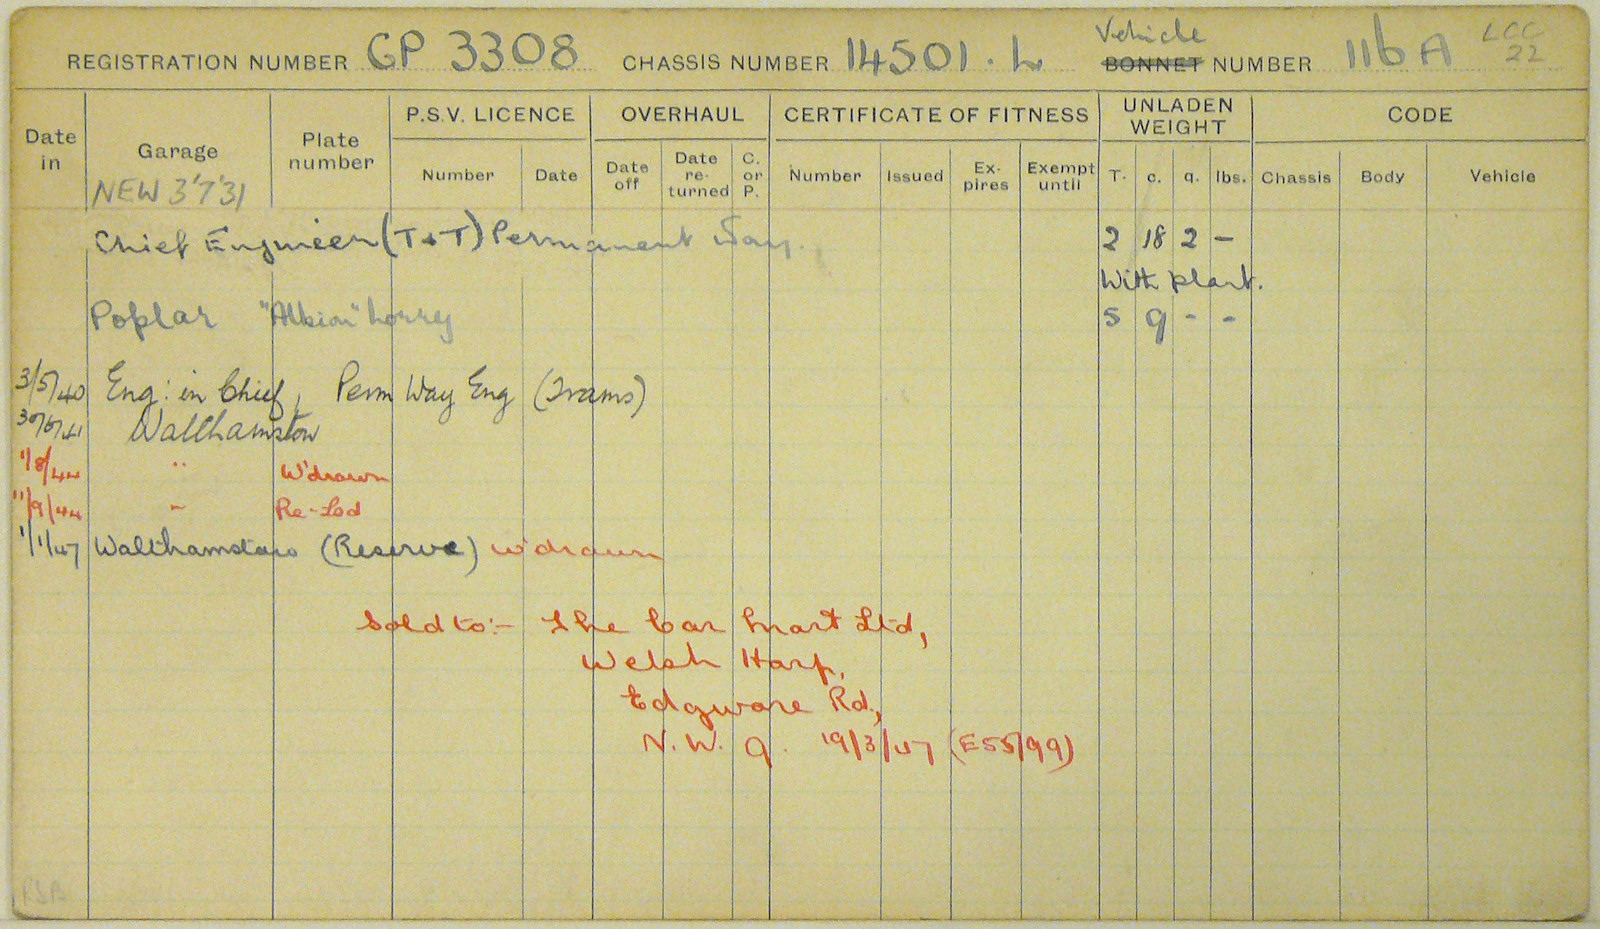 REGISTRATION NUMBER GP 3308 CHASSIS NUMBER 14501.L Vehicle BONNET NUMBER 116 A LCC 22
Date in Garage Plate number P.S.V. LICENCE OVERHAUL CERTIFICATE OF FITNESS UNLADEN WEIGHT CODE
Number Date Date off Date re-turned C. or P. Number Issued Ex-pires Exempt until T. c. q. lbs. Chassis Body Vehicle
NEW 3'7'31
Chief Engineer (T & T) Permanent Way. 2 18 2 -
With plant.
Poplar "Albion" Lorry 5 9 - -
3/5/40 Eng: in Chief, Perm Way Eng (Trams)
30/6/41 Walthamstow
1/8/44 " W'drawn
11/9/44 " Re-Lcd
1/1/47 Walthamstow (Reserve) W'drawn
Sold to:- The Car Mart Ltd,
Welsh Harp,
Edgware Rd,
N.W. 9. 19/3/47 (E55/99)